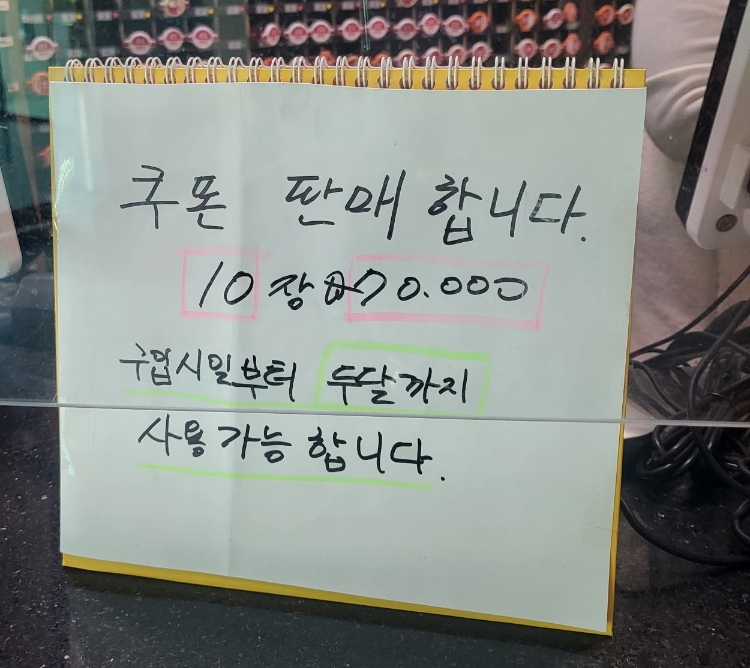 쿠폰 판매 합니다.
10장 ₩70.000
구입시일부터 두달까지
사용가능 합니다.